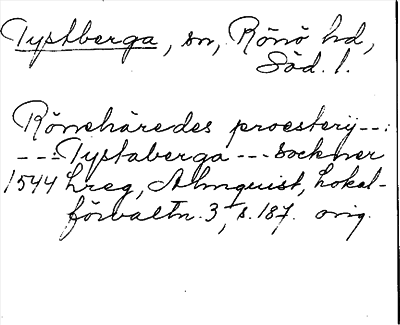 Tystberga, sn, Rönö hd,
Söd. l.
Rönehäredes proesterij ---:
---: Tystaberga --- sockner
1544 Lreg, Almquist, Lokal-
förvaltn. 3, s. 187. orig.